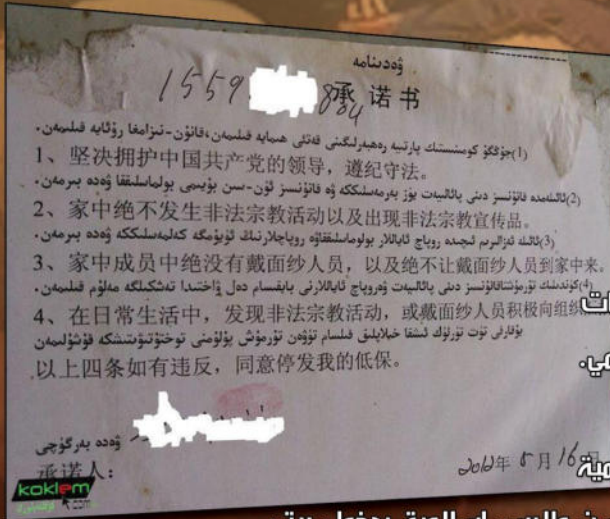 ۋەدىنامە
1559
884
承诺书
(1)جۇڭگو كوممىنستىك پارتىيە رەھبەرلىكىنى قەتئى ھىمايە قىلىمەن، قانۇن-نىزامغا رىئايە قىلىمەن.
1、坚决拥护中国共产党的领导，遵纪守法。
(2)ئائىلەمدە قانۇنسىز دىنى پائالىيەت يۈز بەرمەسلىككە ۋە قانۇنسىز ئۈن-سىن بۇيۇمى بولماسلىققا ۋەدە بىرمەن.
2、家中绝不发生非法宗教活动以及出现非法宗教宣传品。
(3)ئائىلە ئەزالىرىم ئىچىدە روپاچ ئاياللار بولماسلىققاۋە روپاچلارنىڭ ئۆيۈمگە كەلمەسلىككە ۋەدە بىرمەن.
3、家中成员中绝没有戴面纱人员，以及绝不让戴面纱人员到家中来。
(4)كۈندىلىك تۇرمۇشتا قانۇنسىز دىنى پائالىيەت ۋە روپاچ ئاياللارنى بايقىسام دەل ۋاختىدا تەشكىلگە مەلۇم قىلىمەن.
4、在日常生活中，发现非法宗教活动，或戴面纱人员积极向组织
يۇقارقى تۆت تۈرلۈك ئىشقا خىلاپلىق قىلسام تۆۋەن تۇرمۇش پۇلۇمنى توختۇتۇۋىتىشكە قۇشۇلىمەن
以上四条如有违反，同意停发我的低保。
ۋەدە بەرگۈچى
承诺人：
2012年 5月 16日
koklem
.com